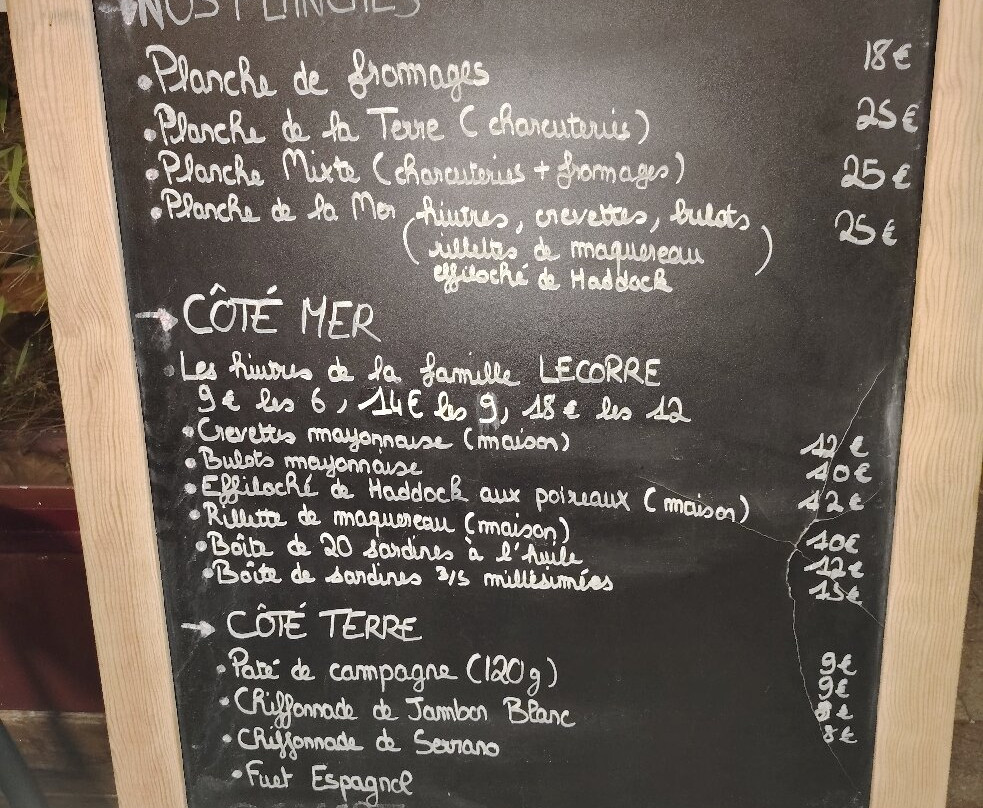 NOS PLANCHES
• Planche de fromages 18€
• Planche de la Terre (charcuteries) 25€
• Planche Mixte (charcuteries + fromages) 25€
• Planche de la Mer (huîtres, crevettes, bulots 25€
rillettes de maquereau
effiloché de Haddock)
→ CÔTÉ MER
Les huîtres de la famille LECORRE
9€ les 6, 14€ les 9, 18€ les 12
• Crevettes mayonnaise (maison) 12€
• Bulots mayonnaise 10€
• Effiloché de Haddock aux poireaux (maison) 12€
• Rillette de maquereau (maison) 10€
• Boîte de 20 sardines à l'huile 12€
• Boîte de sardines 3/5 millésimées 15€
→ CÔTÉ TERRE
• Paté de campagne (120g) 9€
• Chiffonnade de Jambon Blanc 9€
• Chiffonnade de Serrano 9€
• Fuet Espagnol 8€